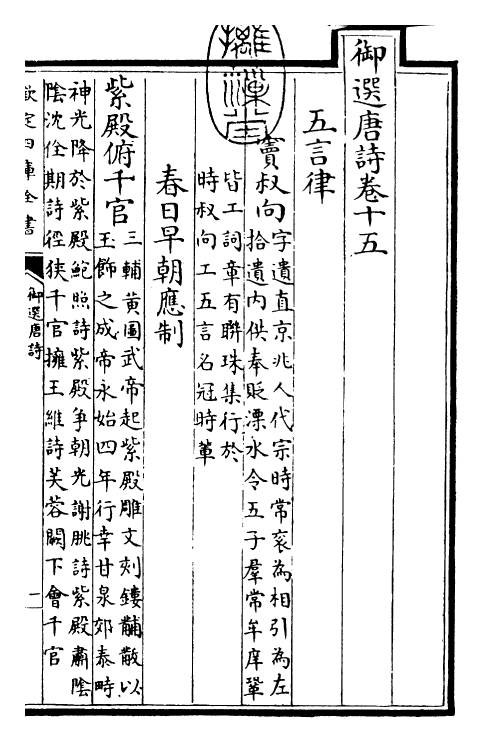 御選唐詩卷十五
五言律
竇叔向字遺直京兆人代宗時常衮為相引為左
拾遺内供奉貶溧水令五子羣常牟庠鞏
皆工詞章有聯珠集行於
時叔向工五言名冠時輩
春日早朝應制
紫殿俯千官三輔黄圖武帝起紫殿雕文刻鏤黼黻以
玉飾之成帝永始四年行幸甘泉郊泰畤
神光降於紫殿鮑照詩紫殿爭朝光謝朓詩紫殿肅陰
陰沈佺期詩徑狭千官擁王維詩芙蓉闕下會千官
欽定四庫全書
御選唐詩
一